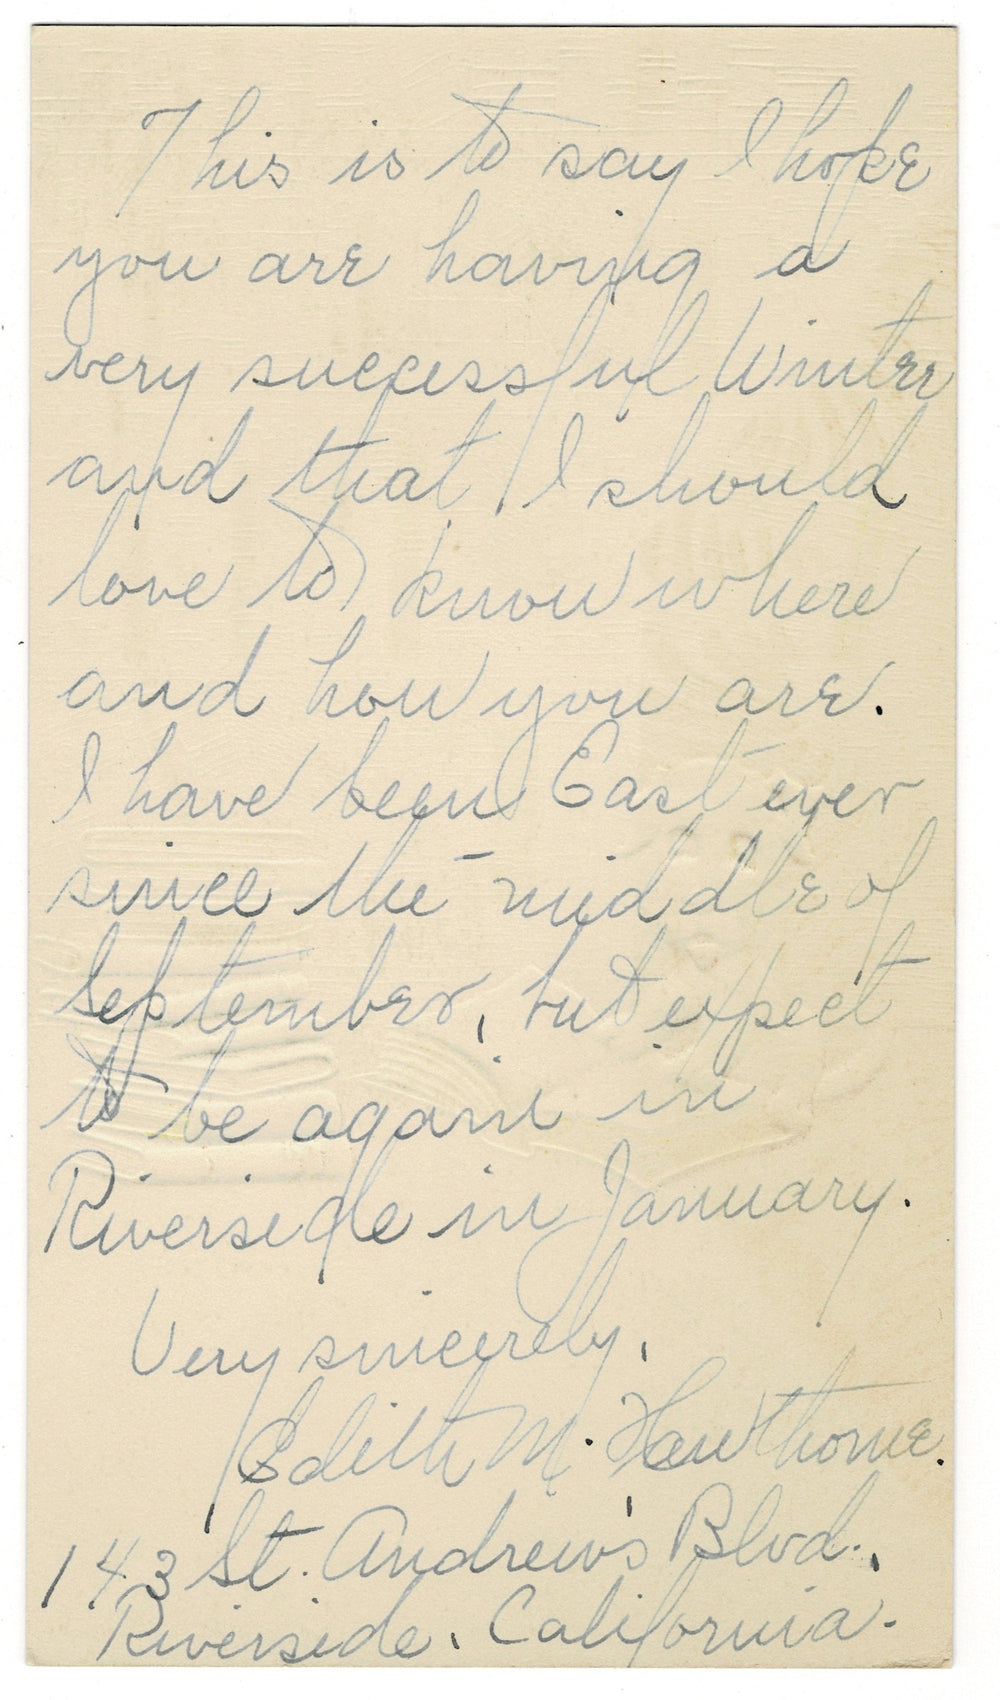 This is to say I hope
you are having a
very successful Winter
and that I should
love to know where
and how you are.
I have been East ever
since the middle of
September, but expect
to be again in
Riverside in January.
Very sincerely,
Edith M. Hawthorne.
143 St. Andrew's Blvd.,
Riverside, California.